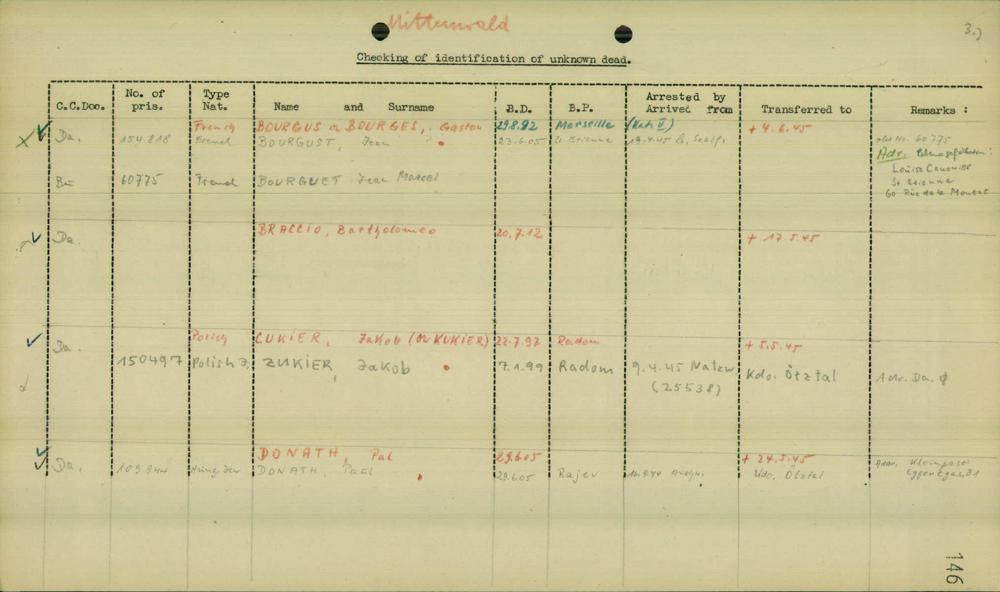 Mittenwald
3.)
Checking of identification of unknown dead.
C.C.Doc. No. of pris. Type Nat. Name and Surname B.D. B.P. Arrested by Arrived from Transferred to Remarks :
Da. French BOURGUS or BOURGES, Gaston 29.8.92 Marseille + 4.6.45
154818 French BOURGUST, Jean 23.6.05 St. Etienne 60775
Adr.
Louise
Bu 60775 French BOURGUET Jean Marcel St. Etienne
60 Rue de la
Da. BRACCIO, Bartholomeo 20.7.12 + 17.5.45
Da. Polish CUKIER, Jakob (or KUKIER) 22.7.97 Radom + 5.5.45
150497 Polish J. ZUKIER, Jakob 7.1.99 Radom 9.4.45 Natzw Kdo. Ötztal Adr. Da. ϕ
(25538)
DONATH, Pal 29.6.05 + 24.5.45
Da. DONATH, Paul 29.6.05 Rajev Kdo. Ötztal
146